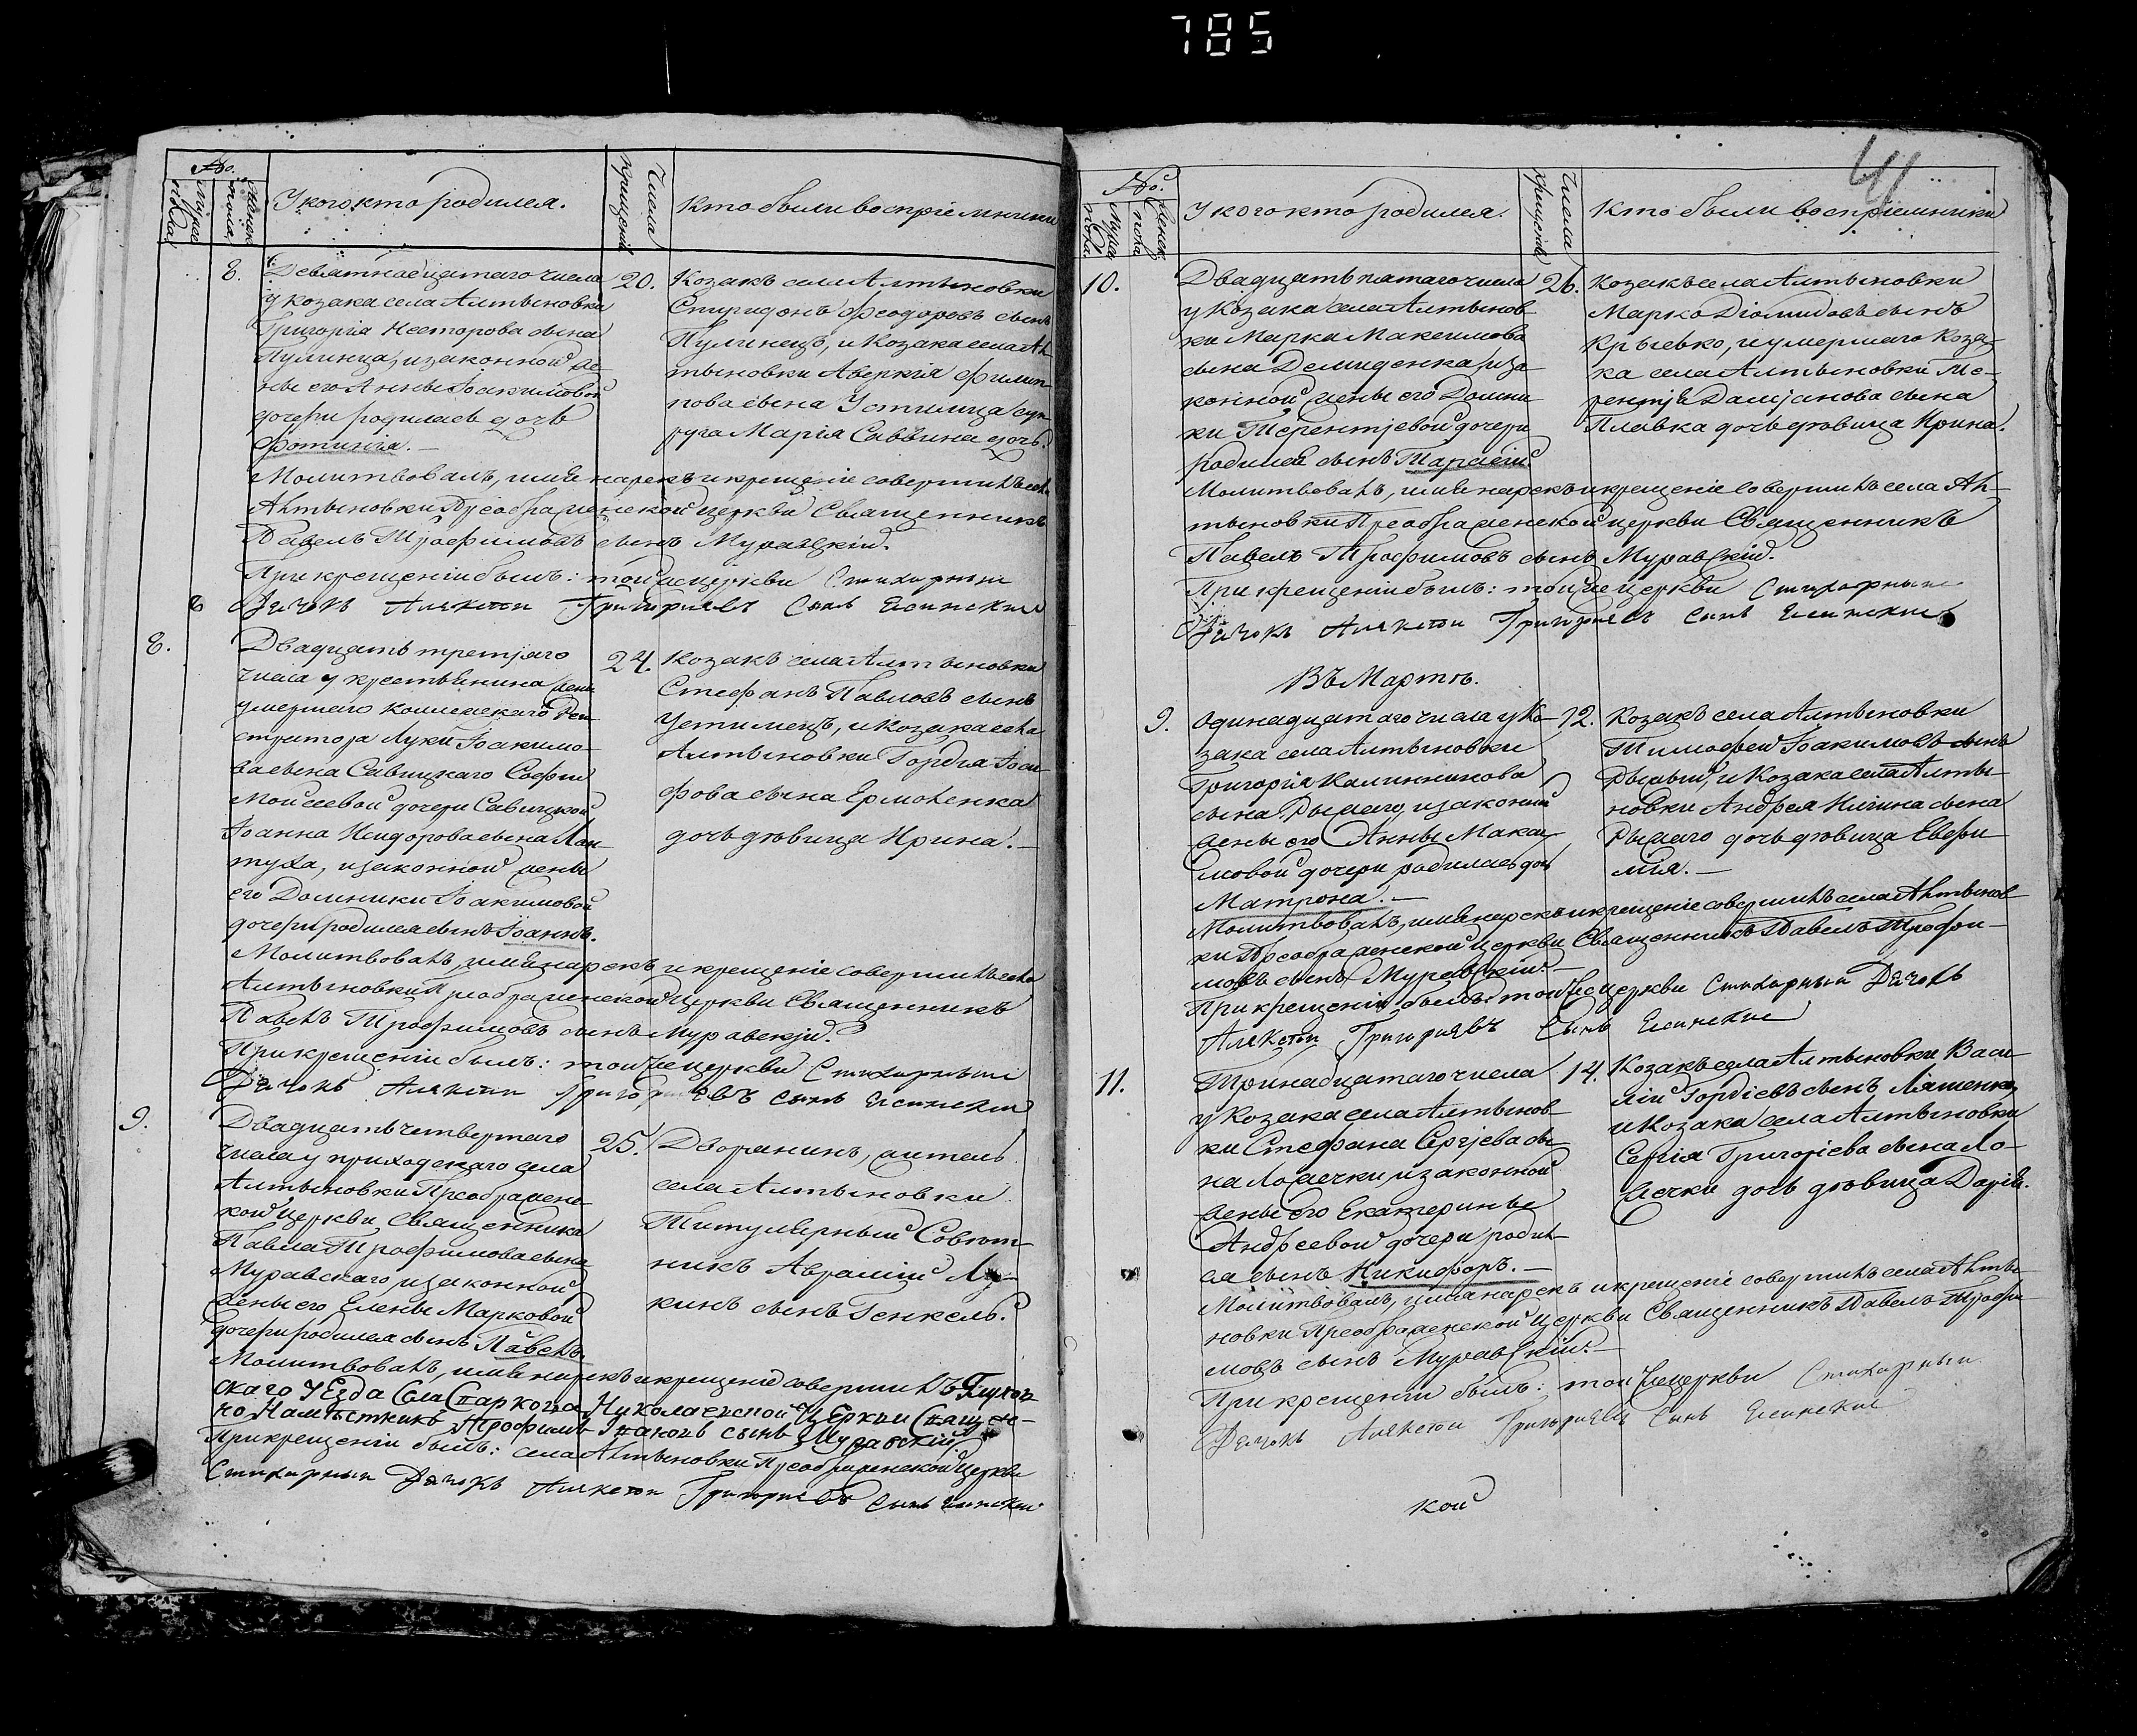 785
41
№.
Мужеска
Женска пола.
У кого кто родился.
Числа крещенія
Кто были воспріемники
8.
Девятнадцатаго числа
у козака села Алтыновки
Григорія Несторова сына
Пулинца, изаконной же-
ны его Анны Іоакимовой
дочери родилась дочь
Фотинія. —
20.
Козакъ села Алтыновки
Спиридонъ Феодоровъ сынъ
Пулинецъ, и козака села Ал-
тыновки Аверкія Филип-
пова сына Устимца супру
руга Марія Саввина дочь.
Молитвовалъ, имя нарекъ и крещеніе совершилъ села
Алтыновки Преображенской церкви Священникъ
Павелъ Трофимовъ сынъ Муравскій.
При крещеніи былъ: той же церкви Стихарный
Дячокъ Алексѣй Григориевъ сынъ
8.
Двадцать третьяго
числа у крестьянина жены
умершаго Коллежскаго Реги-
стратора Луки Іоакимо-
ва сына Савицкаго Софіи
Моисеевой дочери Савицкой
Іоанна Исидорова сына Лан-
туха, изаконной жены
его Домники Іоакимовой
дочери родился сынъ Іоаннъ.
24.
Козакъ села Алтыновки
Стефанъ Павловъ сынъ
Устимецъ, и козака села
Алтыновки Гордѣя Іоси-
фова сына Ермоленка
дочь дѣвица Ирина. —
Молитвовалъ, имя нарекъ и крещеніе совершилъ села
Алтыновки Преображенской церкви Священникъ
Павелъ Трофимовъ сынъ Муравскій.
При крещеніи былъ: той же церкви Стихарный
Дячокъ Алексѣй Григориевъ сынъ
9.
Двадцать четвертаго
числа у приходскаго села
Алтыновки Преображен-
кой церкви Священника
Павла Трофимова сына
Муравскаго изаконной
жены его Елены Марковой
дочери родился сынъ Павелъ.
25.
Дворянинъ, житель
села Алтыновки
Титулярный Совѣт-
никъ Аврамій Лу-
кинъ сынъ Генкель.
Молитвовалъ, имя нарекъ и крещеніе совершилъ Глухов
скаго уезда села Николаевской церкви Священ-
но Намѣстникъ Трофимъ сынъ Муравскій
При крещеніи былъ: села Алтыновки Преображенской церкви
Стихарный Дячокъ Алексѣй Григориевъ сынъ
№.
Мужеска пола.
Женска пола
У кого кто родился.
Числа крещенія
Кто были воспріемники
10.
Двадцать пятаго числа
у козака села Алтынов-
ки Марка Максимова
сына Демиденка, иза-
конной жены его Домни-
ки Терентьевой дочери
родился сынъ Тарасій.
26.
Козакъ села Алтыновки
Марко Діомидовъ сынъ
Крысько, и умершаго коза-
ка села Алтыновки Те-
рентія Даміанова сына
Плавка дочь дѣвица Ирина.
Молитвовалъ, имя нарекъ и крещеніе совершилъ села Ал-
тыновки Преображенской церкви Священникъ
Павелъ Трофимовъ сынъ Муравскій.
При крещеніи былъ: той же церкви Стихарный
Дячокъ Алексѣй Григориевъ сынъ
Въ Мартѣ.
9.
Одинадцатаго числа у ко-
зака села Алтыновки
Григорія Калинникова
сына Рыжаго, изаконной
жены его Анны Макси-
мовой дочери родилась дочь
Матрона. —
12.
Козакъ села Алтыновки
Тимофей Іоакимовъ сынъ
Рыжый, и козака села Алты-
новки Андрея Ильина сына
Рыжаго дочь дѣвица Евфи-
мія. —
Молитвовалъ, имя нарекъ и крещеніе совершилъ села Алтынов-
ки Преображенской церкви Священникъ Павелъ Трофи-
мовъ сынъ Муравскій. —
При крещеніи былъ: той же церкви Стихарный Дячокъ
Алексѣй Григориевъ сынъ
11.
Тринадцатаго числа
у козака села Алтынов-
ки Стефана Сергіева сы-
на Ложечки, изаконной
жены его Екатерины
Андреевой дочери родил-
ся сынъ Никифоръ. —
14.
Козакъ села Алтыновки Васи-
лій Гордіевъ сынъ Ляшенко,
и козака села Алтыновки
Сергія Григоріева сына Ло-
жечки дочь дѣвица Дарія.
Молитвовалъ, имя нарекъ и крещеніе совершилъ села Алты-
новки Преображенской церкви Священникъ Павелъ Трофи
мовъ сынъ Муравскій. —
При крещеніи былъ: той же церкви Стихарный
Дячокъ Алексѣй Григориевъ сынъ
кой